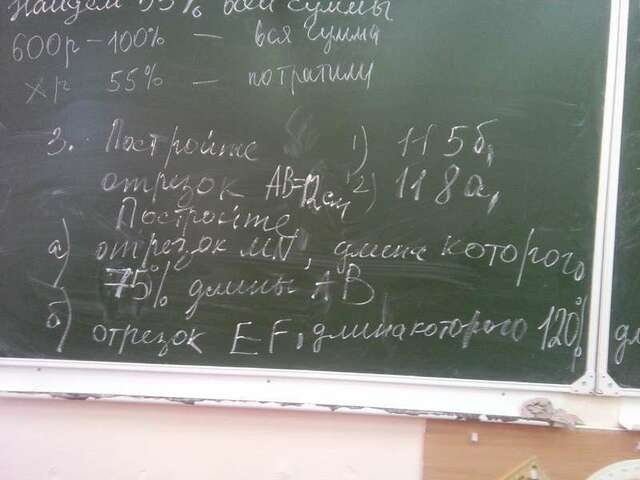 найдем 55% всей суммы
600р – 100% – вся сумма
хр 55% – потратили
3. Постройте 1) 115б,
отрезок AB=12см, 2) 118а,
Постройте
а) отрезок MN, длина которого
75% длины AB
б) отрезок EF, длина которого 120%
дл